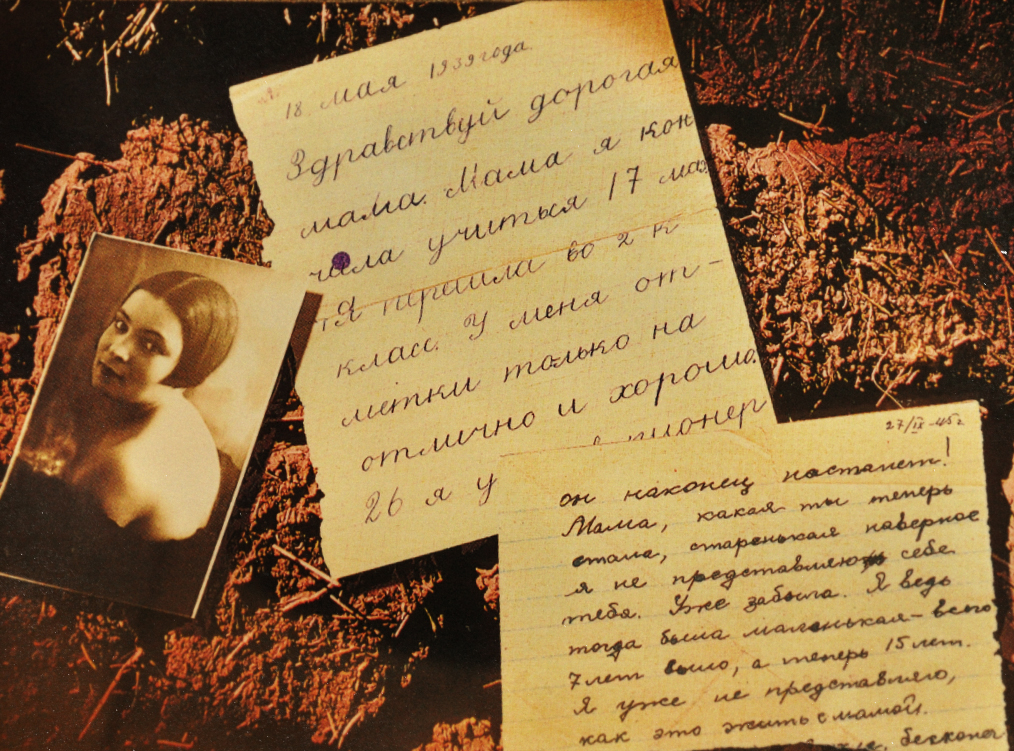 18 мая 1939 года.
Здравствуй дорогая
мама. Мама я кон
чила учиться 17 мая
Я перешла во 2 й
класс. У меня от-
метки только на
отлично и хорошо.
26 я у
пионер
27/IX-45 г.
он наконец настанет!
Мама, какая ты теперь
стала, старенькая наверное
я не представляю себе
тебя. Уже забыла. Я ведь
тогда была маленькая - всего
7 лет было, а теперь 15 лет.
Я уже не представляю,
как это жить с мамой.